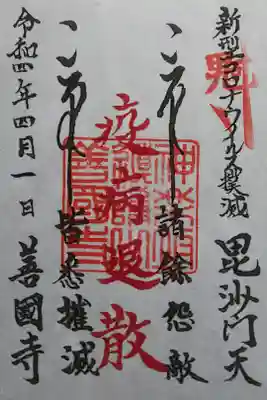 新型コロナウイルス撲滅
毘沙門天
諸餘怨敵
疫病退散
皆悉摧滅
令和四年四月一日 善國寺
善國寺